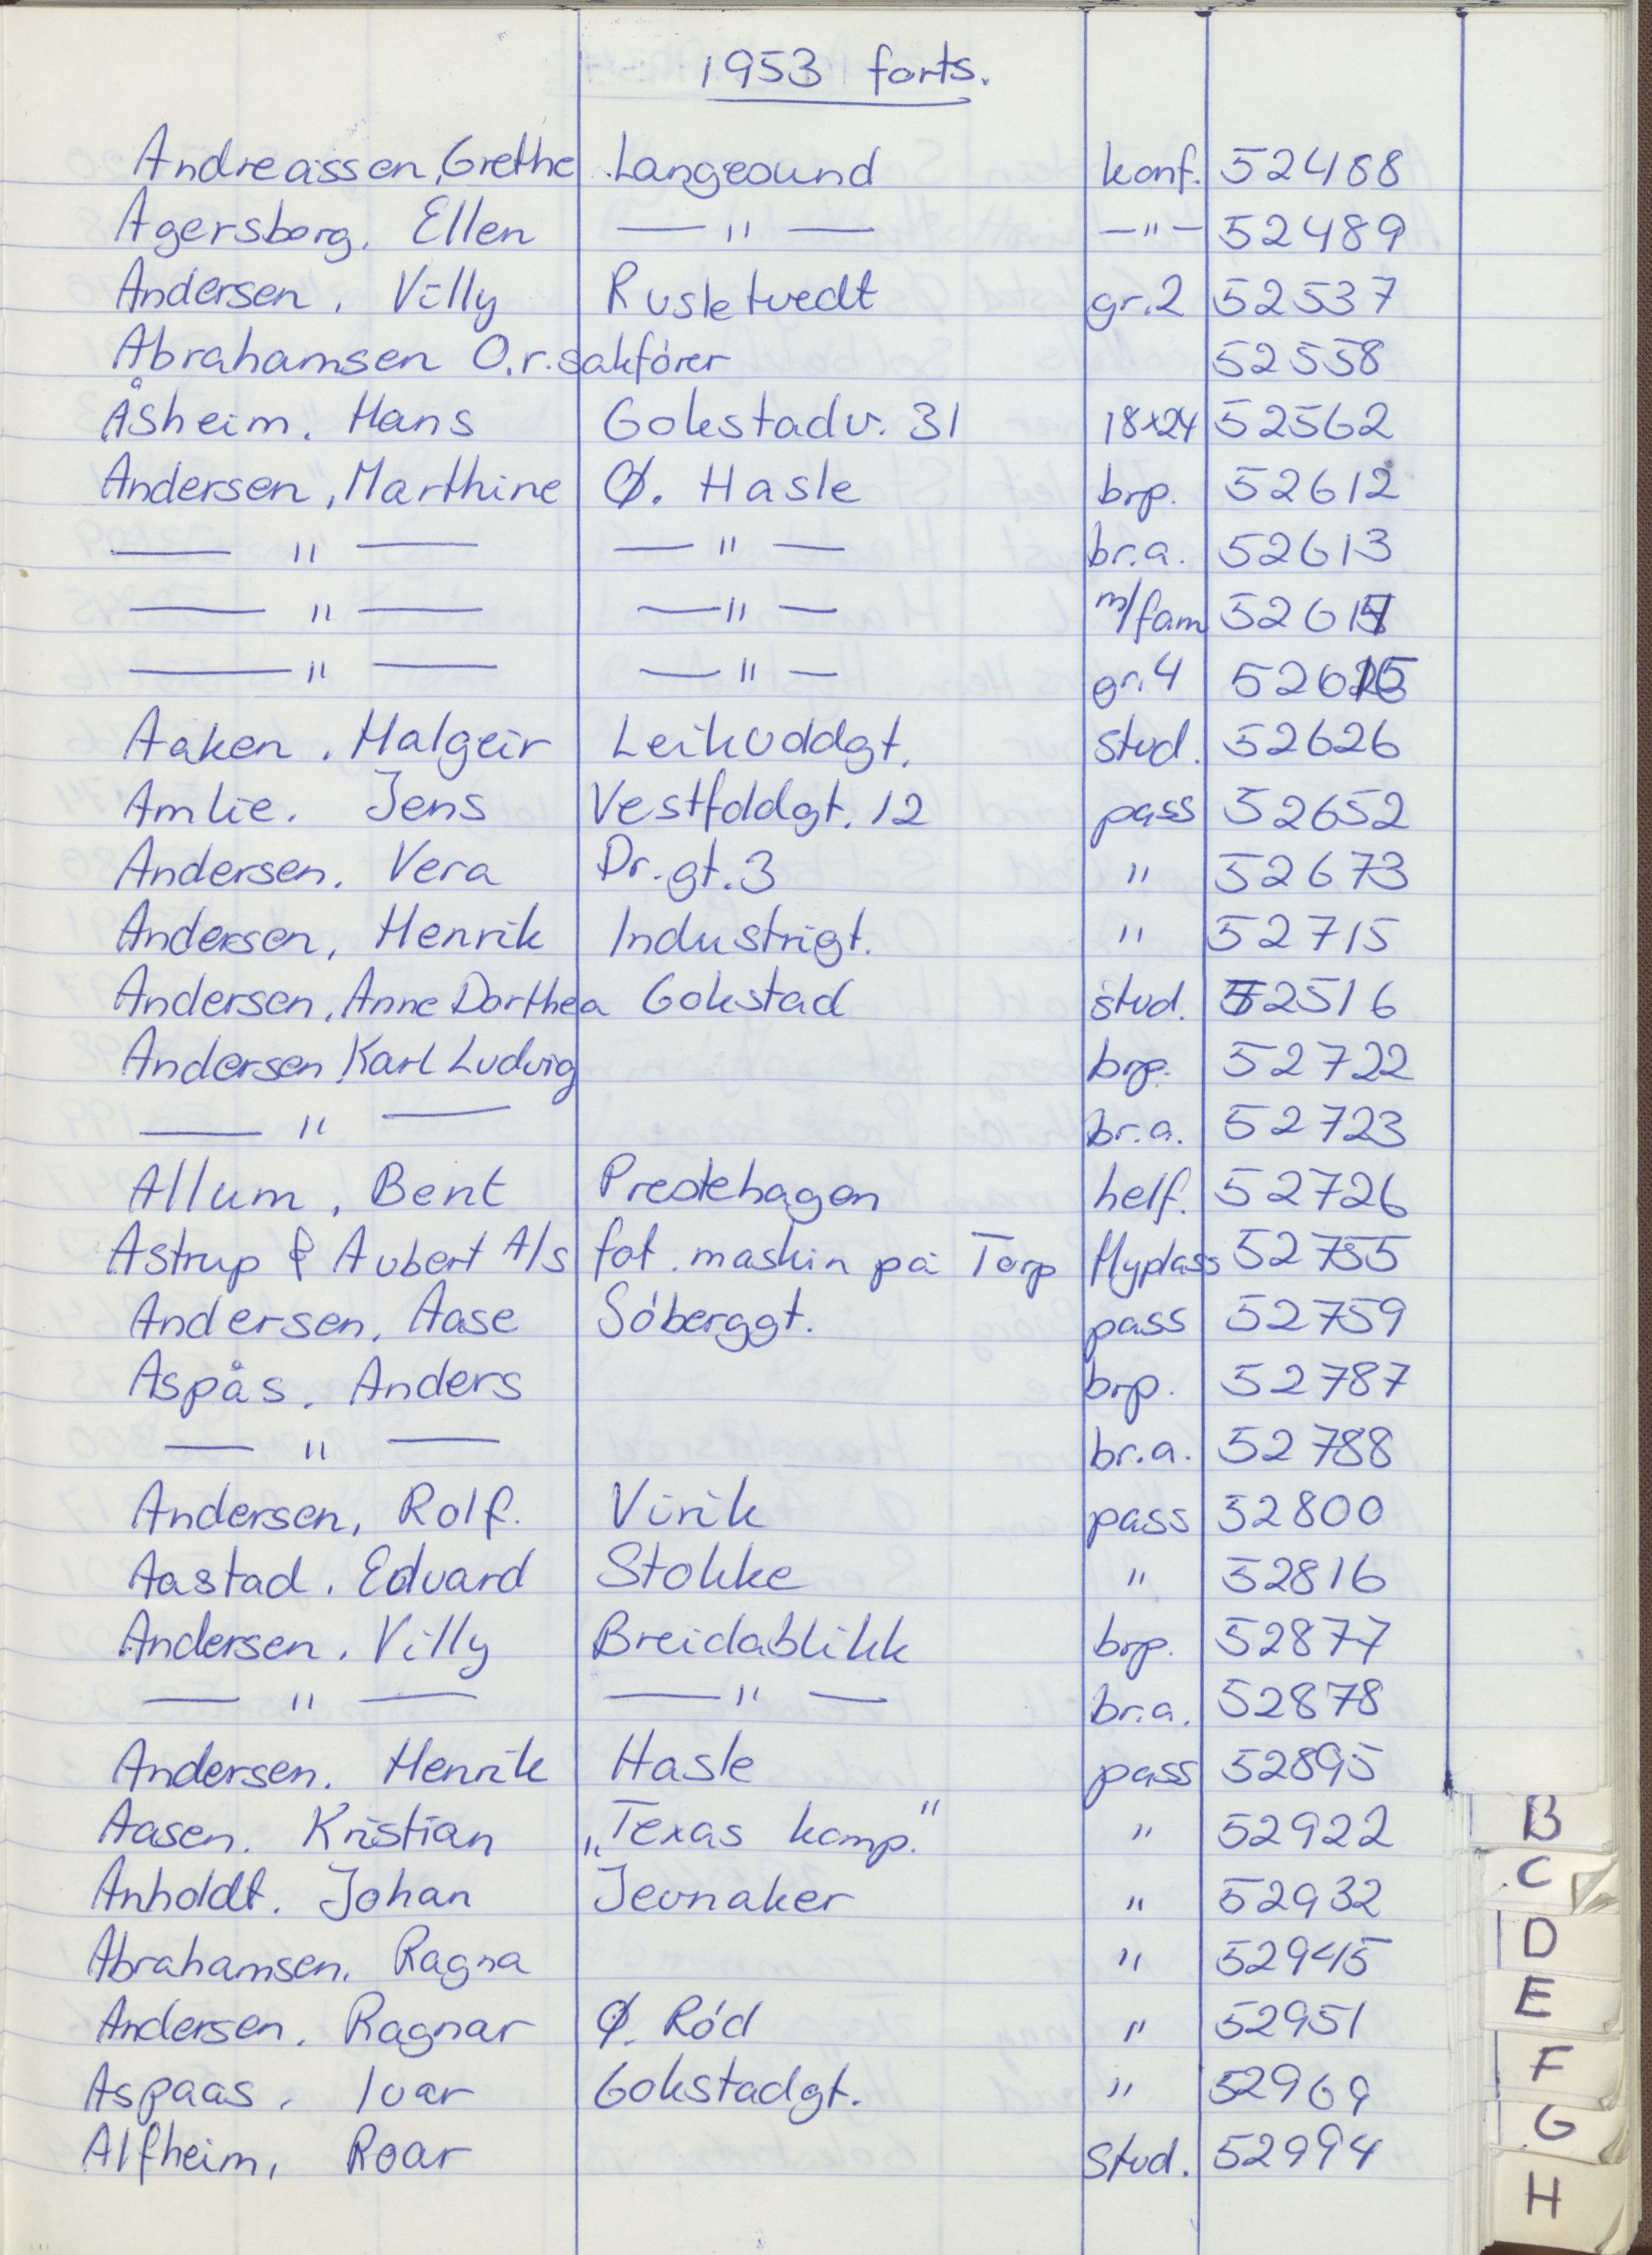 1953 forts.
Andreassen, Grethe Langesund konf. 52488
Agersborg. Ellen — " — — " — 52489
Andersen. Villy Rusletvedt gr.2 52537
Abrahamsen O.r.sakfórer 52558
Åsheim. Hans Gokstadv. 31 18x24 52562
Andersen, Marthine Ø. Hasle brp. 52612
— " — — " — br.a. 52613
— " — — " — m/fam 52614
— " — — " — gr.4 52615
Aaken. Halgeir Leikvoldgt. stud. 52626
Amlie. Jens Vestfoldgt. 12 pass 52652
Andersen. Vera Dr.gt.3 " 52673
Andersen, Henrik Industrigt. " 52715
Andersen, Anne Dorthea Gokstad stud. 52516
Andersen, Karl Ludvig brp. 52722
— " — br.a. 52723
Allum, Bent Prestehagen helf. 52726
Astrup & Aubert A/s fot. maskin på Torp Flyplass 52755
Andersen, Aase Sóberggt. pass 52759
Aspås. Anders brp. 52787
— " — br.a. 52788
Andersen, Rolf. Virik pass 52800
Aastad. Edvard Stokke " 52816
Andersen. Villy Breidablikk brp. 52877
— " — — " — br.a. 52878
Andersen. Henrik Hasle pass 52895
Aasen. Kristian „Texas komp." " 52922
Anholdt. Johan Jevnaker " 52932
Abrahamsen. Ragna " 52945
Andersen. Ragnar Ø. Ród " 52951
Aspaas. Ivar Gokstadgt. " 52969
Alfheim, Roar stud. 52994
B
C
D
E
F
G
H